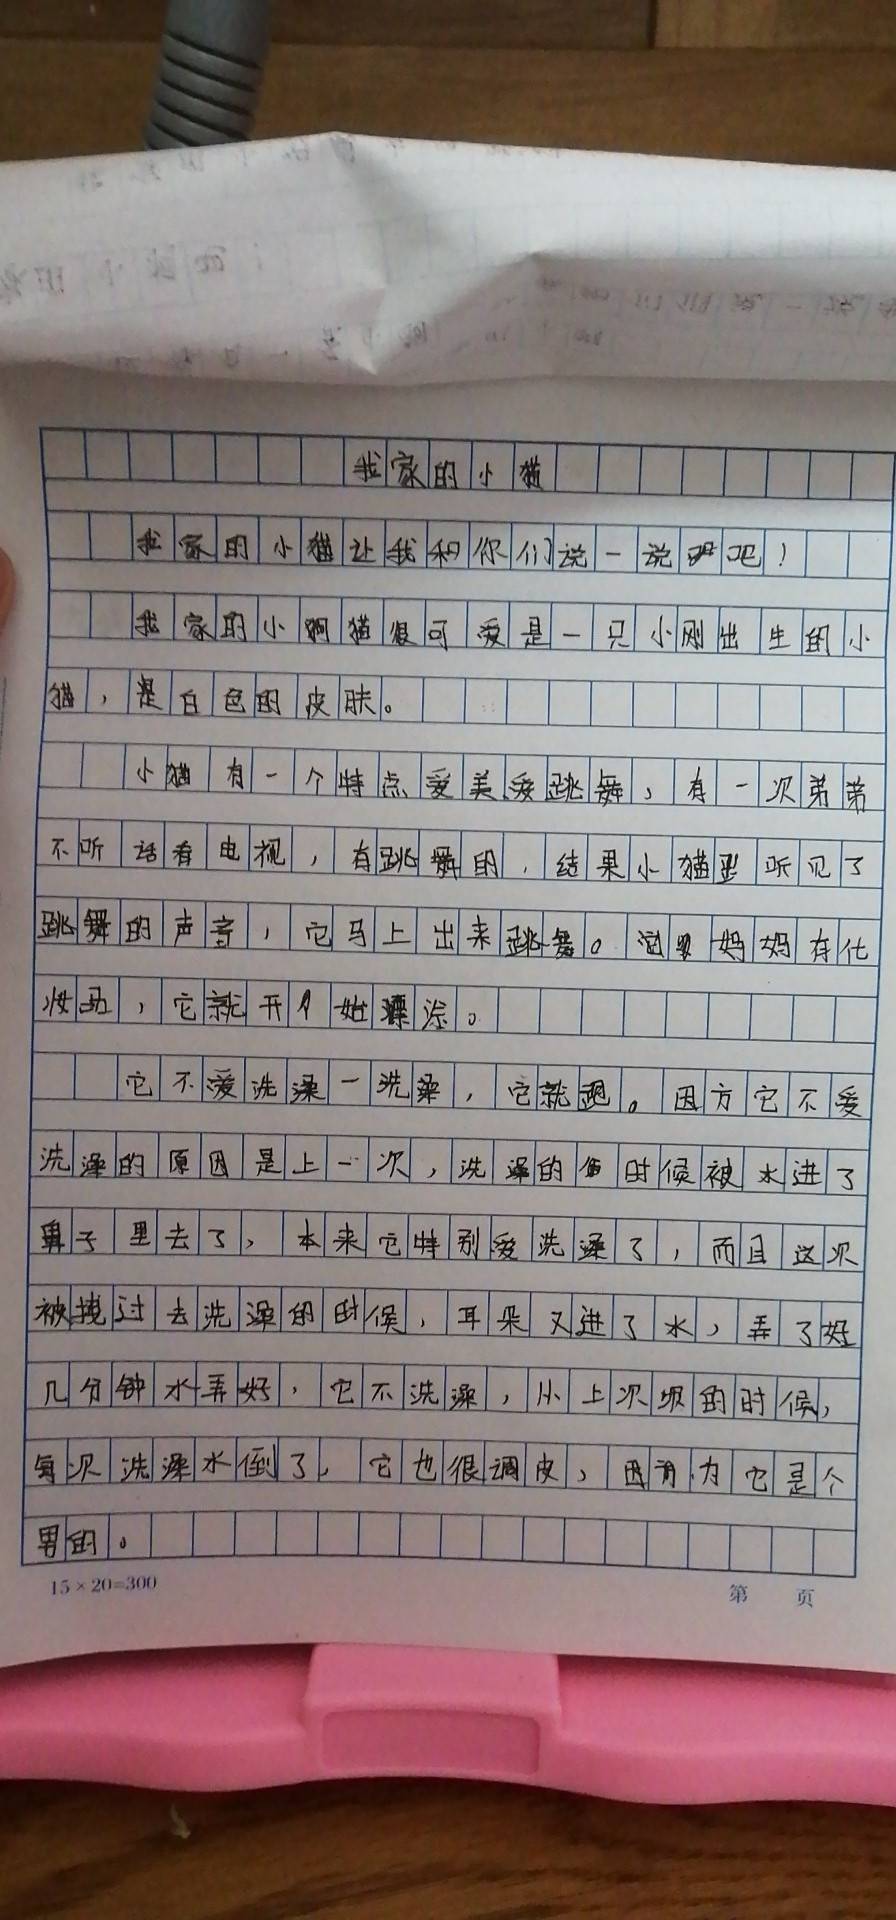 我家的小猫
我家的小猫让我和你们说一说吧！
我家的小猫很可爱是一只小刚出生的小
猫，是白色的皮肤。
小猫有一个特点爱美爱跳舞，有一次弟弟
不听话看电视，有跳舞的，结果小猫听见了
跳舞的声音，它马上出来跳舞。妈妈有化
妆品，它就开始漂涂。
它不爱洗澡一洗澡，它就跑。因方它不爱
洗澡的原因是上一次，洗澡的时候被水进了
鼻子里去了，本来它特别爱洗澡了，而且这次
被拽过去洗澡的时候，耳朵又进了水，弄了好
几分钟水弄好，它不洗澡，从上次的时候，
每次洗澡水倒了，它也很调皮，因为它是个
男的。
15×20=300
第 页